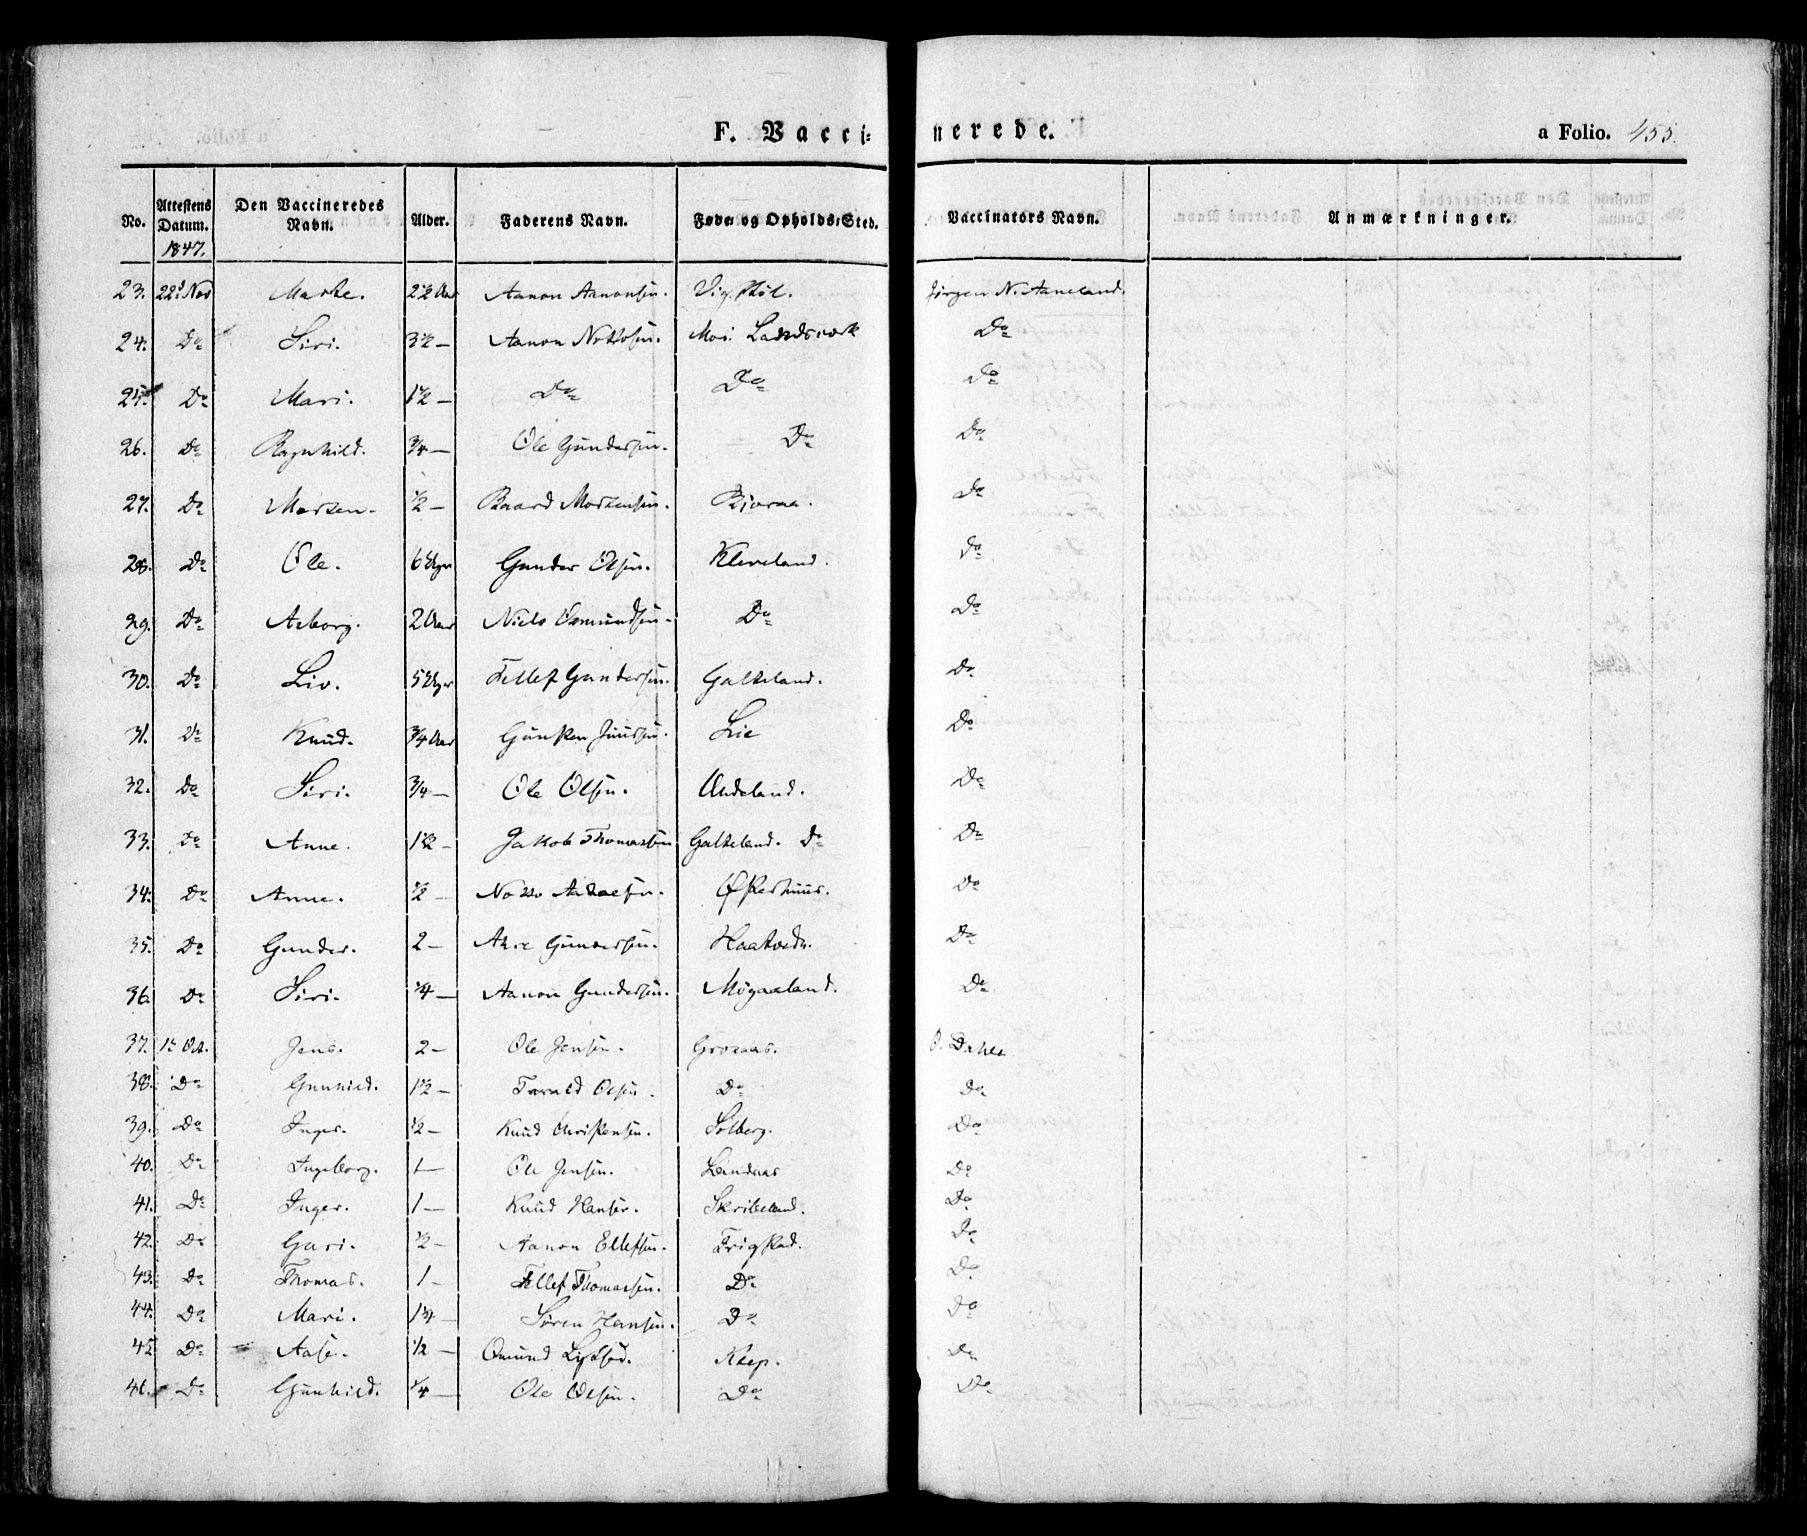 F. Vacci= nerede. a Folio. 455.
No. Attestens Datum. 1847. Den Vaccineredes Navn. Alder. Faderens Navn. Føde og Opholds-Sted. Vaccinators Navn. Anmærkninger.
23. 22d Nov Marte. 2 1/2 Aar Aanon Aanonsen. Vig. Jørgen N. Aaneland.
24. Do Siri. 3 1/2 — Aanon Nottosen. Mos. Do
25. Do Mari. 1 1/2 — Do Do Do
26. Do Ragnhild. 3/4 — Ole Gundersen. Do Do
27. Do Morten. 1/2 — Baard Mortensen. Bjoraa. Do
28. Do Ole. 6 Uger Gunder Olsen. Kleveland. Do
29. Do Asborg. 2 Aar Niels Osmundsen. Do Do
30. Do Liv. 5 Uger Tellef Gundersen. Galteland. Do
31. Do Knud. 3/4 Aar Gunsten Juusen. Lie Do
32. Do Siri. 3/4 — Ole Olsen. Do
33. Do Anne. 1 1/2 — Jakob Thomassen Galteland. Do Do
34. Do Anne. 1/2 — Notto Do
35. Do Gunder. 2 — Gundersen. Haatvedt. Do
36. Do Siri. 1/4 — Aanon Gundersen. Do
37. 1te Oct. Jens. 2 — Ole Jensen. Groaas. O. Dahle
38. Do Gunhild. 1 1/2 — Tarald Olsen. Do Do
39. Do Inger. 1/2 — Knud Christensen. Solberg. Do
40. Do Ingeborg. 1 — Ole Jensen. Landaas Do
41. Do Inger. 1 — Knud Hansen. Skribeland. Do
42. Do Guri. 1/2 — Aanon Ellefsen. Frigstad. Do
43. Do Thomas. 1 — Tellef Thomassen. Do Do
44. Do Mari. 1 1/4 — Søren Hansen. Do Do
45 Do Aase. 1/2 — Omund Klep. Do
46. Do Gunhild. 1/4 — Ole Olsen. Do Do